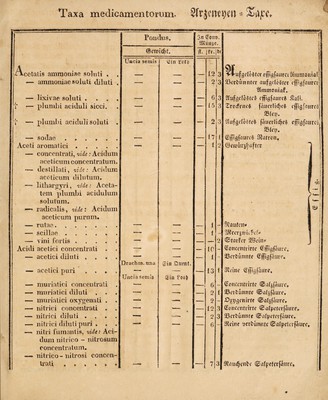 Taxa medicamentorum. Arzeneyen = Taxe.
Pondus. In Conv. Münze.
Gewicht. fl. kr.
Uncia semis Ein Loth
Acetatis ammoniae soluti . . — — — 12 3 Aufgelöster essigsaurer Ammoniak.
— ammoniae soluti diluti . — — — 2 3 Verdünnter aufgelöster essigsaurer
Ammoniak.
— lixivae soluti . . . . — — — 6 3 Aufgelöstes essigsaures Kali.
† — plumbi aciduli sicci. . . — — — 15 3 Trockenes säuerliches essigsaures
Bley.
† — plumbi aciduli soluti . . — — — 2 3 Aufgelöstes säuerliches essigsaures
Bley.
— sodae . . . . . . — — — 17 1 Essigsaures Natron.
Aceti aromatici . . . . . — — — 1 2 Gewürzhafter
— concentrati, vide: Acidum
aceticum concentratum.
— destillati, vide: Acidum
aceticum dilutum.
— lithargyri, vide: Aceta-
tem plumbi acidulum
solutum.
— radicalis, vide: Acidum
aceticum purum.
— rutae . . . . . . — — — 1 Rauten=
— scillae . . . . . . — — — 1 Meerzwiebel=
— vini fortis . . . . . — — — Starker Wein=
Essig.
Acidi acetici concentrati . . — — — 10 Concentrirte Essigsäure.
— acetici diluti . . . . — — — 1 Verdünnte Essigsäure.
Drachma una Ein Quent.
— acetici puri . . . . . — — — 13 1 Reine Essigsäure.
Uncia semis Ein Loth
— muriatici concentrati . . — — — 6 Concentrirte Salzsäure.
— muriatici diluti . . . . — — — 2 1 Verdünnte Salzsäure.
— muriatici oxygenati . . — — — 2 Oxygenirte Salzsäure.
— nitrici concentrati . . . — — — 12 3 Concentrirte Salpetersäure.
— nitrici diluti . . . . . — — — 2 3 Verdünnte Salpetersäure.
— nitrici diluti puri . . . — — — 6 Reine verdünnte Salpetersäure.
— nitri fumantis, vide: Aci-
dum nitrico - nitrosum
concentratum.
— nitrico - nitrosi concen-
trati . . . . . . — — — 7 3 Rauchende Salpetersäure.